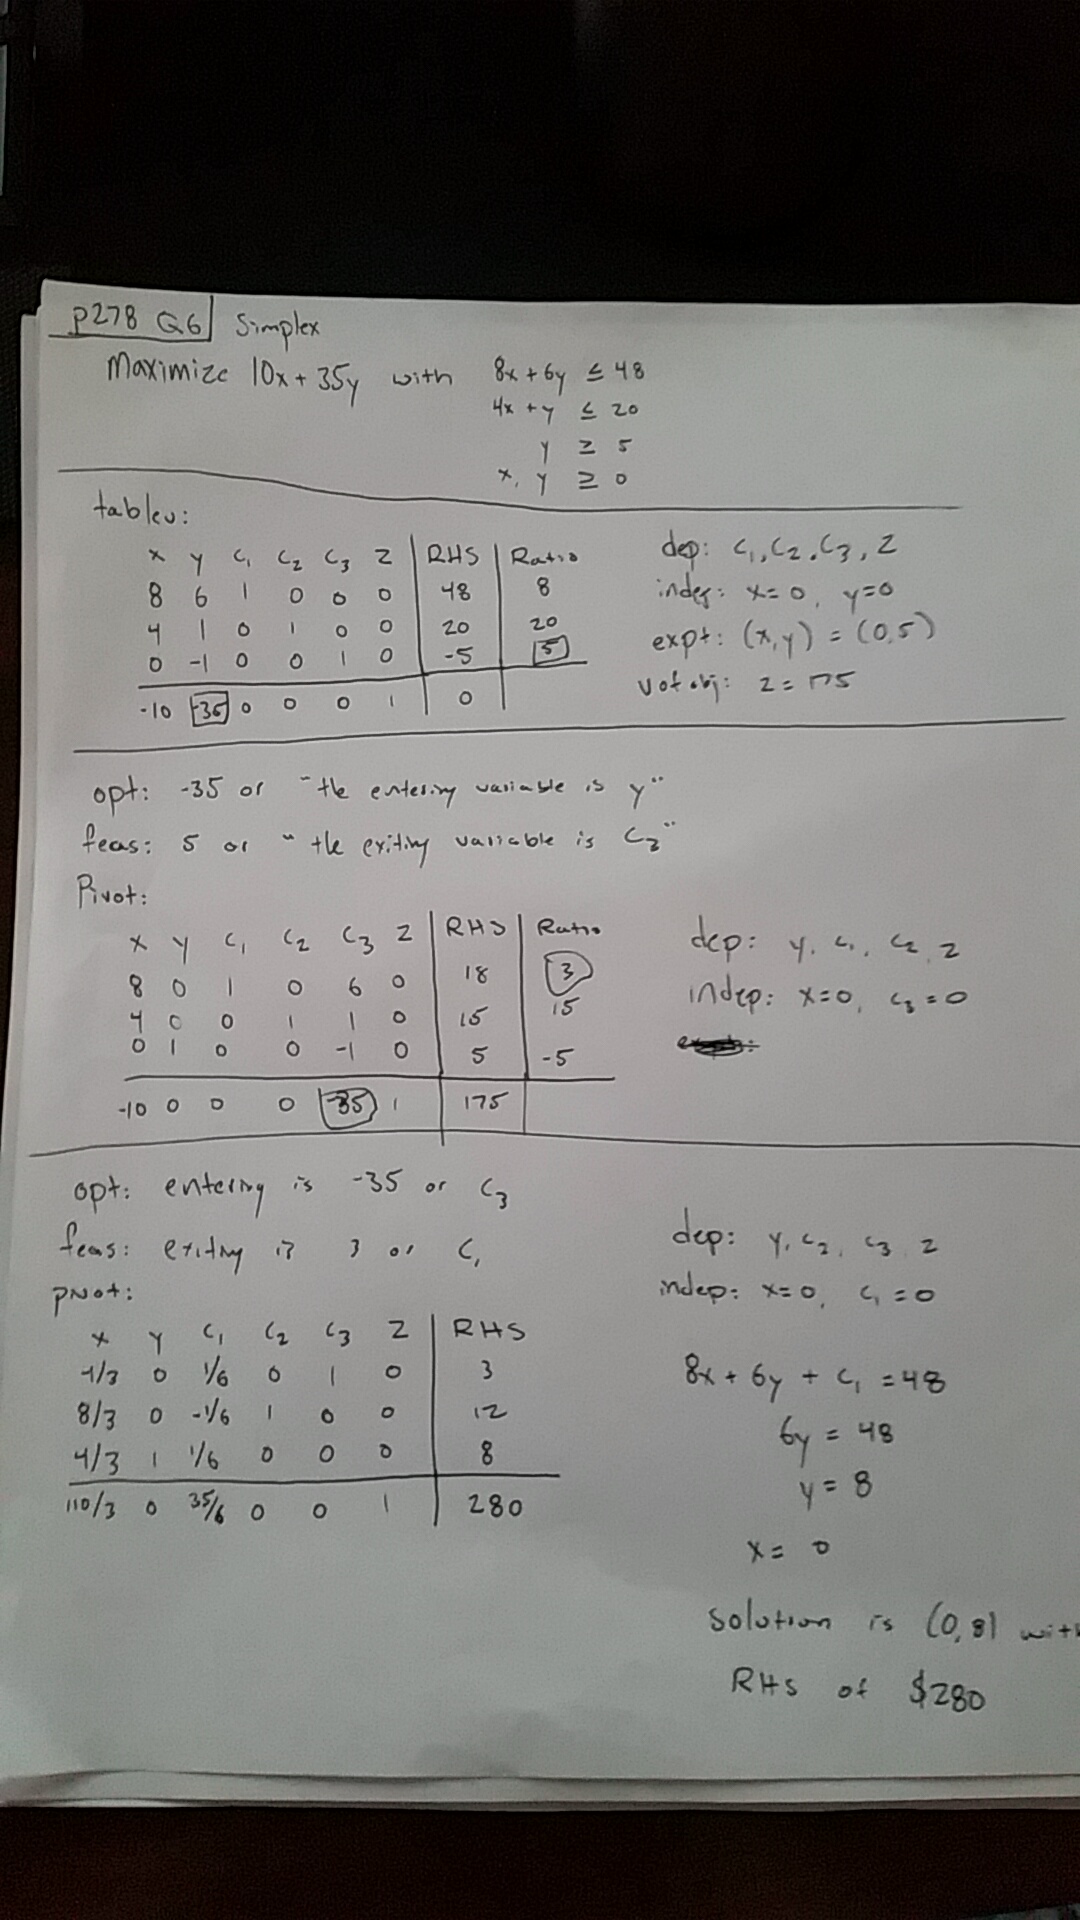 p278 Q6 Simplex
Maximize 10x + 35y with 8x + 6y ≤ 48
4x + y ≤ 20
y ≥ 5
x, y ≥ 0
tableu:
x y C₁ C₂ C₃ Z RHS Ratio
8 6 1 0 0 0 48 8
4 1 0 1 0 0 20 20
0 -1 0 0 1 0 -5 5
-10 -35 0 0 0 1 0
dep: C₁, C₂, C₃, Z
indep: x=0, y=0
expt: (x,y) = (0,5)
v of obj: Z = 175
opt: -35 or "the entering variable is y"
feas: 5 or "the exiting variable is C₃"
Pivot:
x y C₁ C₂ C₃ Z RHS Ratio
8 0 1 0 6 0 18 3
4 0 0 1 1 0 15 15
0 1 0 0 -1 0 5 -5
-10 0 0 0 -35 1 175
dep: y, C₁, C₂, Z
indep: x=0, C₃=0
opt: entering is -35 or C₃
feas: exiting is 3 or C₁
pivot:
x y C₁ C₂ C₃ Z RHS
4/3 0 1/6 0 1 0 3
8/3 0 -1/6 1 0 0 12
4/3 1 1/6 0 0 0 8
110/3 0 35/6 0 0 1 280
dep: y, C₂, C₃, Z
indep: x=0, C₁=0
8x + 6y + C₁ = 48
6y = 48
y = 8
x = 0
Solution is (0,8) with
RHS of $280